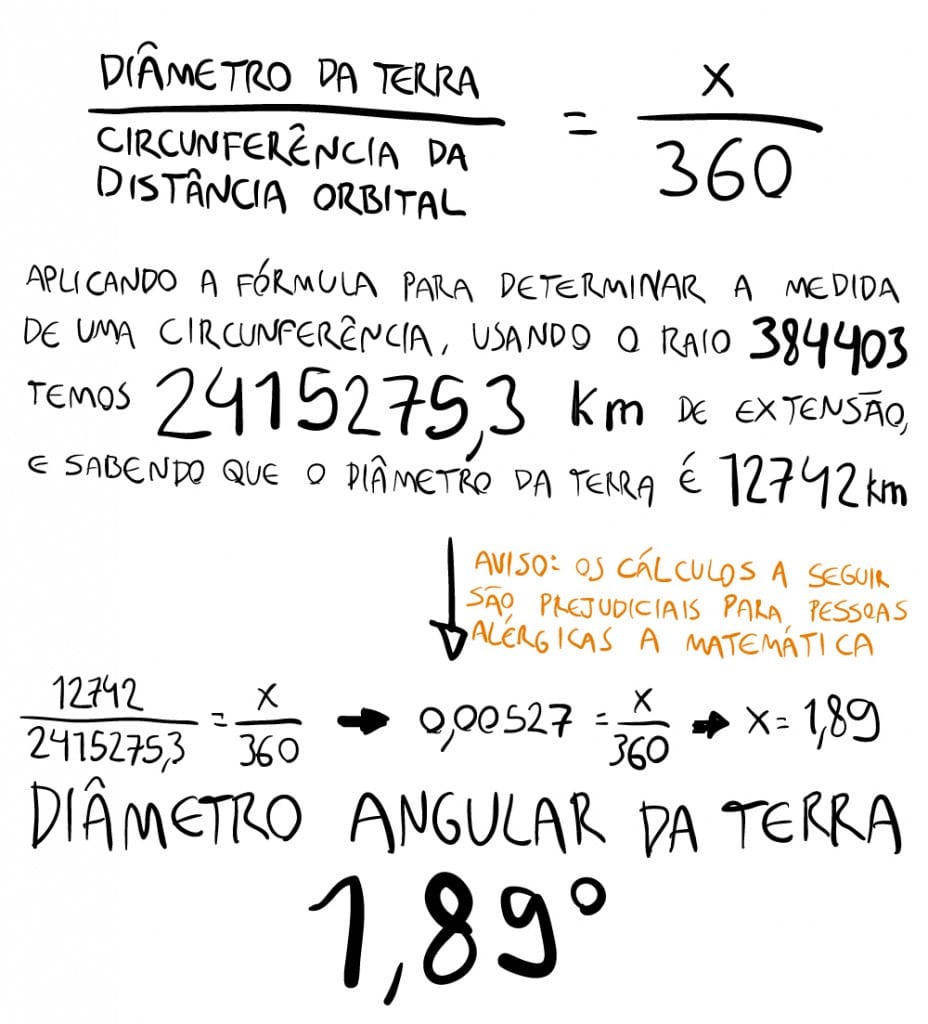 DIÂMETRO DA TERRA
CIRCUNFERÊNCIA DA
DISTÂNCIA ORBITAL
=
X
360
APLICANDO A FÓRMULA PARA DETERMINAR A MEDIDA
DE UMA CIRCUNFERÊNCIA, USANDO O RAIO 384403
TEMOS 2415275,3 Km DE EXTENSÃO,
E SABENDO QUE O DIÂMETRO DA TERRA É 12742 km
AVISO: OS CÁLCULOS A SEGUIR
SÃO PREJUDICIAIS PARA PESSOAS
ALÉRGICAS A MATEMÁTICA
12742
2415275,3
=
X
360
0,00527 =
X
360
X = 1,89
DIÂMETRO ANGULAR DA TERRA
1,89°